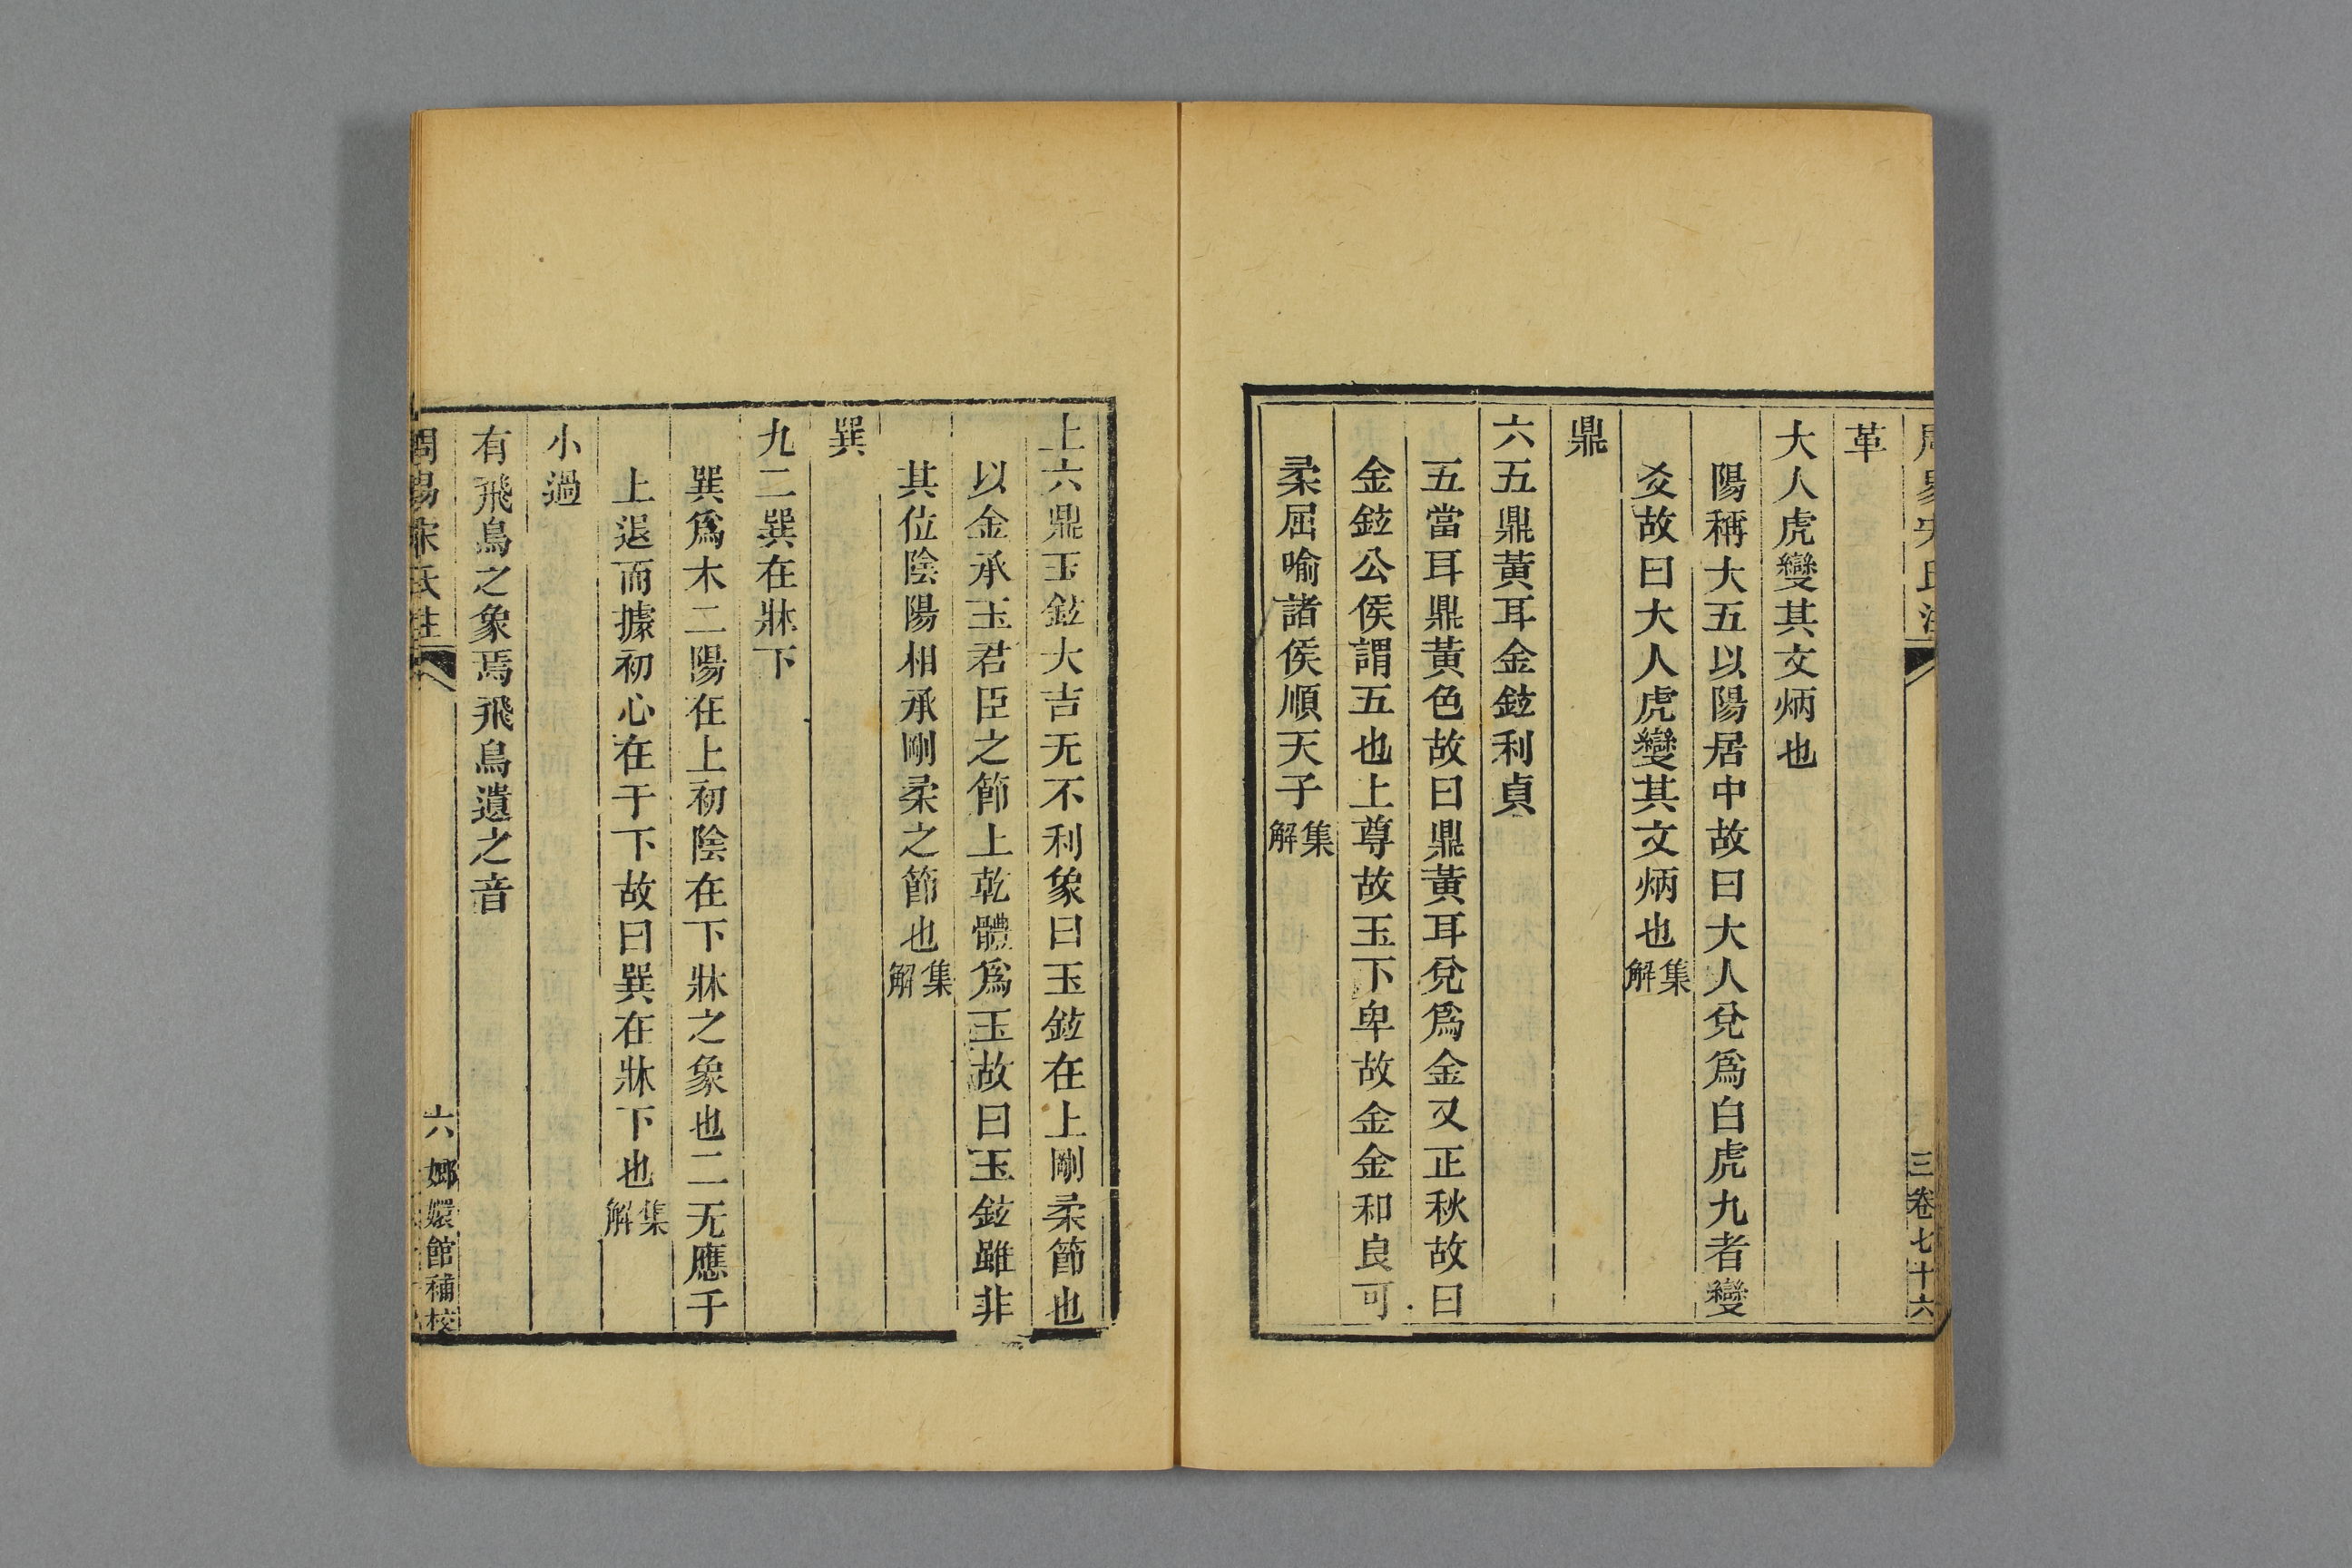 周易宋氏注
三卷七十六
革
大人虎變其文炳也
陽稱大五以陽居中故曰大人兌爲白虎九者變
爻故曰大人虎變其文炳也集解
鼎
六五鼎黃耳金鉉利貞
五當耳鼎黃色故曰鼎黃耳兌爲金又正秋故曰
金鉉公侯謂五也上尊故玉下卑故金金和良可
柔屈喻諸侯順天子集解
上六鼎玉鉉大吉无不利象曰玉鉉在上剛柔節也
以金承玉君臣之節上乾體爲玉故曰玉鉉雖非
其位陰陽相承剛柔之節也集解
巽
九二巽在牀下
巽爲木二陽在上初陰在下牀之象也二无應于
上退而據初心在于下故曰巽在牀下也集解
小過
有飛鳥之象焉飛鳥遺之音
周易宋氏注
六
嫏嬛館補校